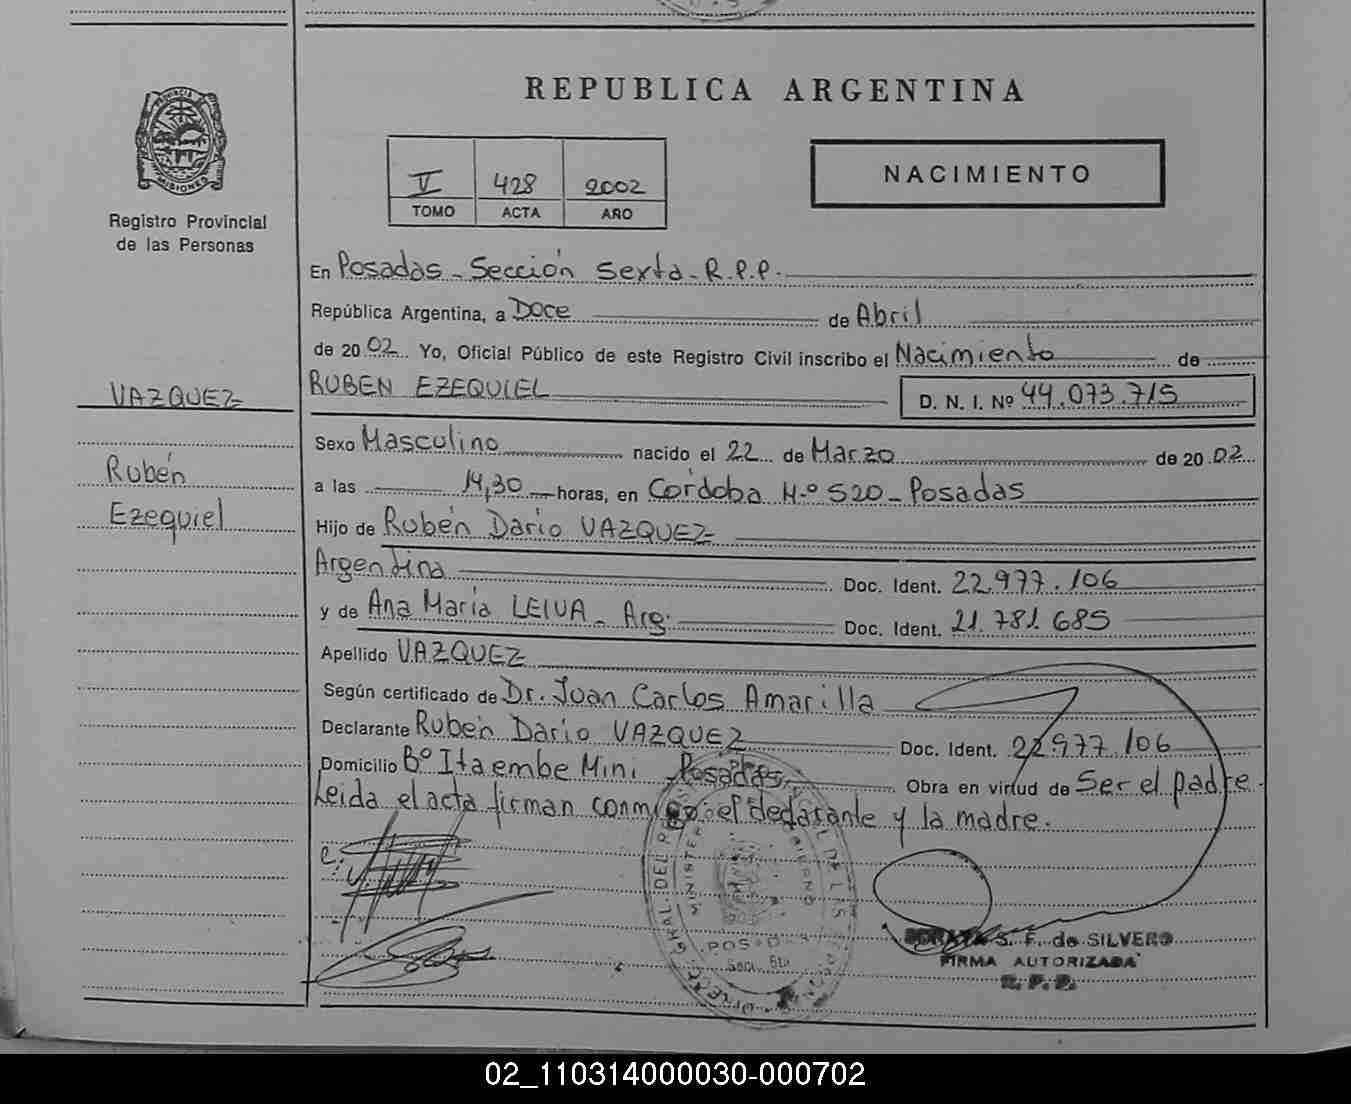 REPUBLICA ARGENTINA
PROVINCIA DE MISIONES
Registro Provincial
de las Personas
V 428 2002
TOMO ACTA AÑO
NACIMIENTO
En Posadas - Sección Sexta - R.P.P.
República Argentina, a Doce de Abril
de 2002 Yo, Oficial Público de este Registro Civil inscribo el Nacimiento de
RUBEN EZEQUIEL D. N. I. Nº 44.073.715
VAZQUEZ
Rubén
Ezequiel
Sexo Masculino nacido el 22 de Marzo de 2002
a las 14,30 horas, en Córdoba N.º 520 - Posadas
Hijo de Rubén Dario VAZQUEZ
Argentina Doc. Ident. 22.977.106
y de Ana María LEIVA - Arg. Doc. Ident. 21.781.685
Apellido VAZQUEZ
Según certificado de Dr. Juan Carlos Amarilla
Declarante Rubén Dario VAZQUEZ Doc. Ident. 22.977.106
Domicilio Bº Itaembe Mini Posadas Obra en virtud de Ser el padre.
Leida el acta firman conmigo: el declarante y la madre.
S. F. de SILVERO
FIRMA AUTORIZADA
R. P. P.
02_110314000030-000702